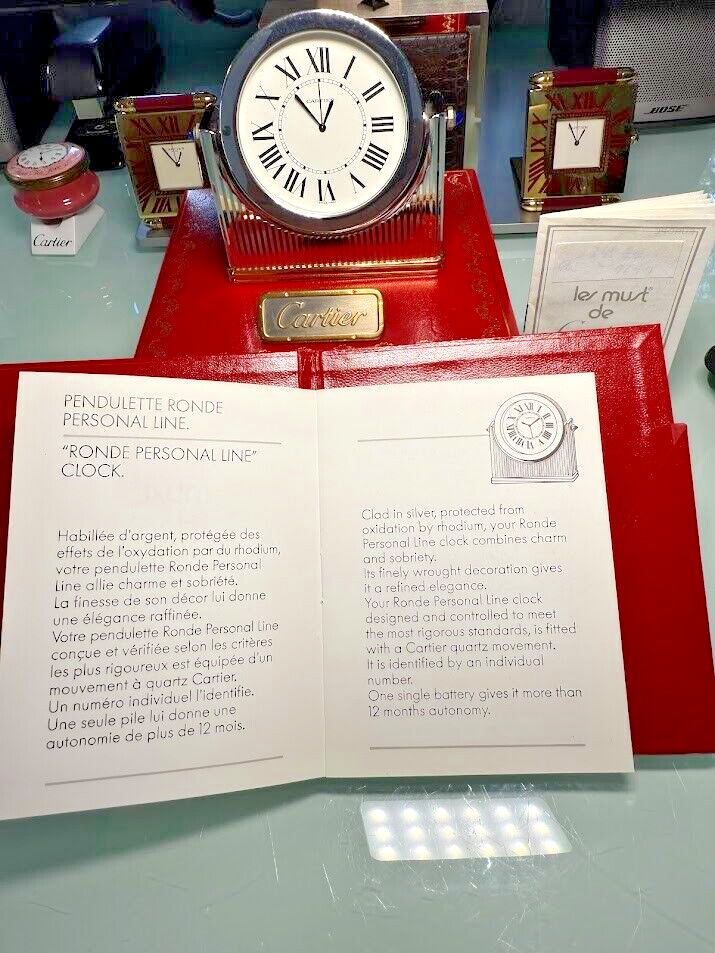 XII
I
II
III
IIII
V
VI
VII
VIII
IX
X
XI
CARTIER
BOSE
Cartier
Cartier
les must
de
PENDULETTE RONDE
PERSONAL LINE.
"RONDE PERSONAL LINE"
CLOCK.
Habillée d'argent, protégée des
effets de l'oxydation par du rhodium,
votre pendulette Ronde Personal
Line allie charme et sobriété.
La finesse de son décor lui donne
une élégance raffinée.
Votre pendulette Ronde Personal Line
conçue et vérifiée selon les critères
les plus rigoureux est équipée d'un
mouvement à quartz Cartier.
Un numéro individuel l'identifie.
Une seule pile lui donne une
autonomie de plus de 12 mois.
Clad in silver, protected from
oxidation by rhodium, your Ronde
Personal Line clock combines charm
and sobriety.
Its finely wrought decoration gives
it a refined elegance.
Your Ronde Personal Line clock
designed and controlled to meet
the most rigorous standards, is fitted
with a Cartier quartz movement.
It is identified by an individual
number.
One single battery gives it more than
12 months autonomy.